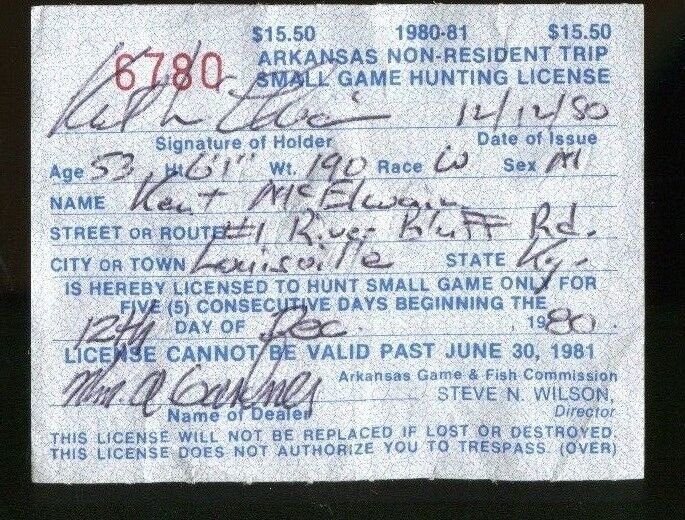 $15.50 1980-81 $15.50
6780 ARKANSAS NON-RESIDENT TRIP
SMALL GAME HUNTING LICENSE
12/12/80
Signature of Holder Date of Issue
Age 53 Ht. 6'1" Wt. 190 Race W Sex M
NAME Kent McElwain
STREET OR ROUTE #1 River Bluff Rd.
CITY OR TOWN Louisville STATE Ky.
IS HEREBY LICENSED TO HUNT SMALL GAME ONLY FOR
FIVE (5) CONSECUTIVE DAYS BEGINNING THE
12th DAY OF Dec. , 1980.
LICENSE CANNOT BE VALID PAST JUNE 30, 1981
Arkansas Game & Fish Commission
STEVE N. WILSON,
Name of Dealer Director
THIS LICENSE WILL NOT BE REPLACED IF LOST OR DESTROYED.
THIS LICENSE DOES NOT AUTHORIZE YOU TO TRESPASS. (OVER)